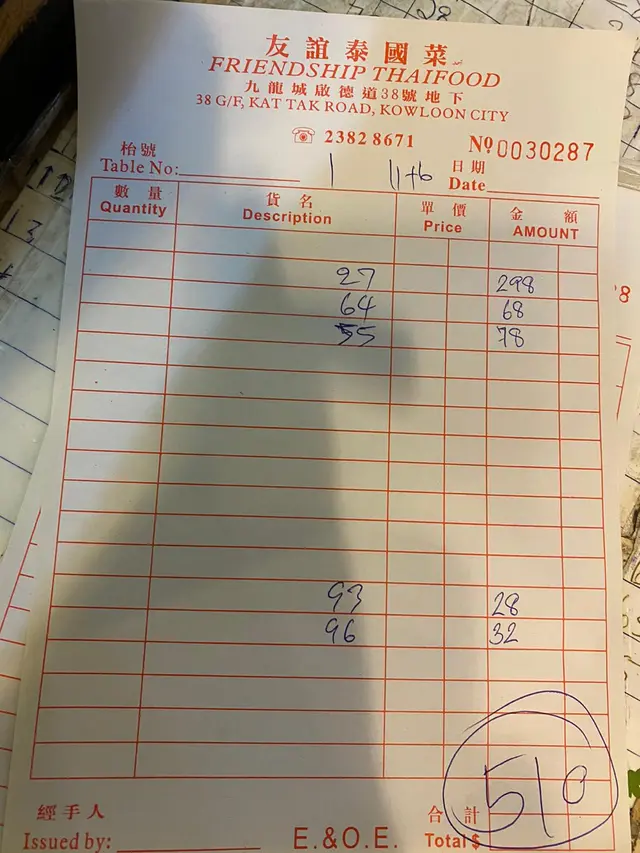 友誼泰國菜
FRIENDSHIP THAIFOOD
九龍城啟德道38號地下
38 G/F, KAT TAK ROAD, KOWLOON CITY
☏ 2382 8671 Nº 0030287
枱號 日期
Table No: 1 11+6 Date
數量 貨名 單價 金額
Quantity Description Price AMOUNT
27 298
64 68
55 78
93 28
96 32
經手人 合計
Issued by: E.&O.E. Total $ 510